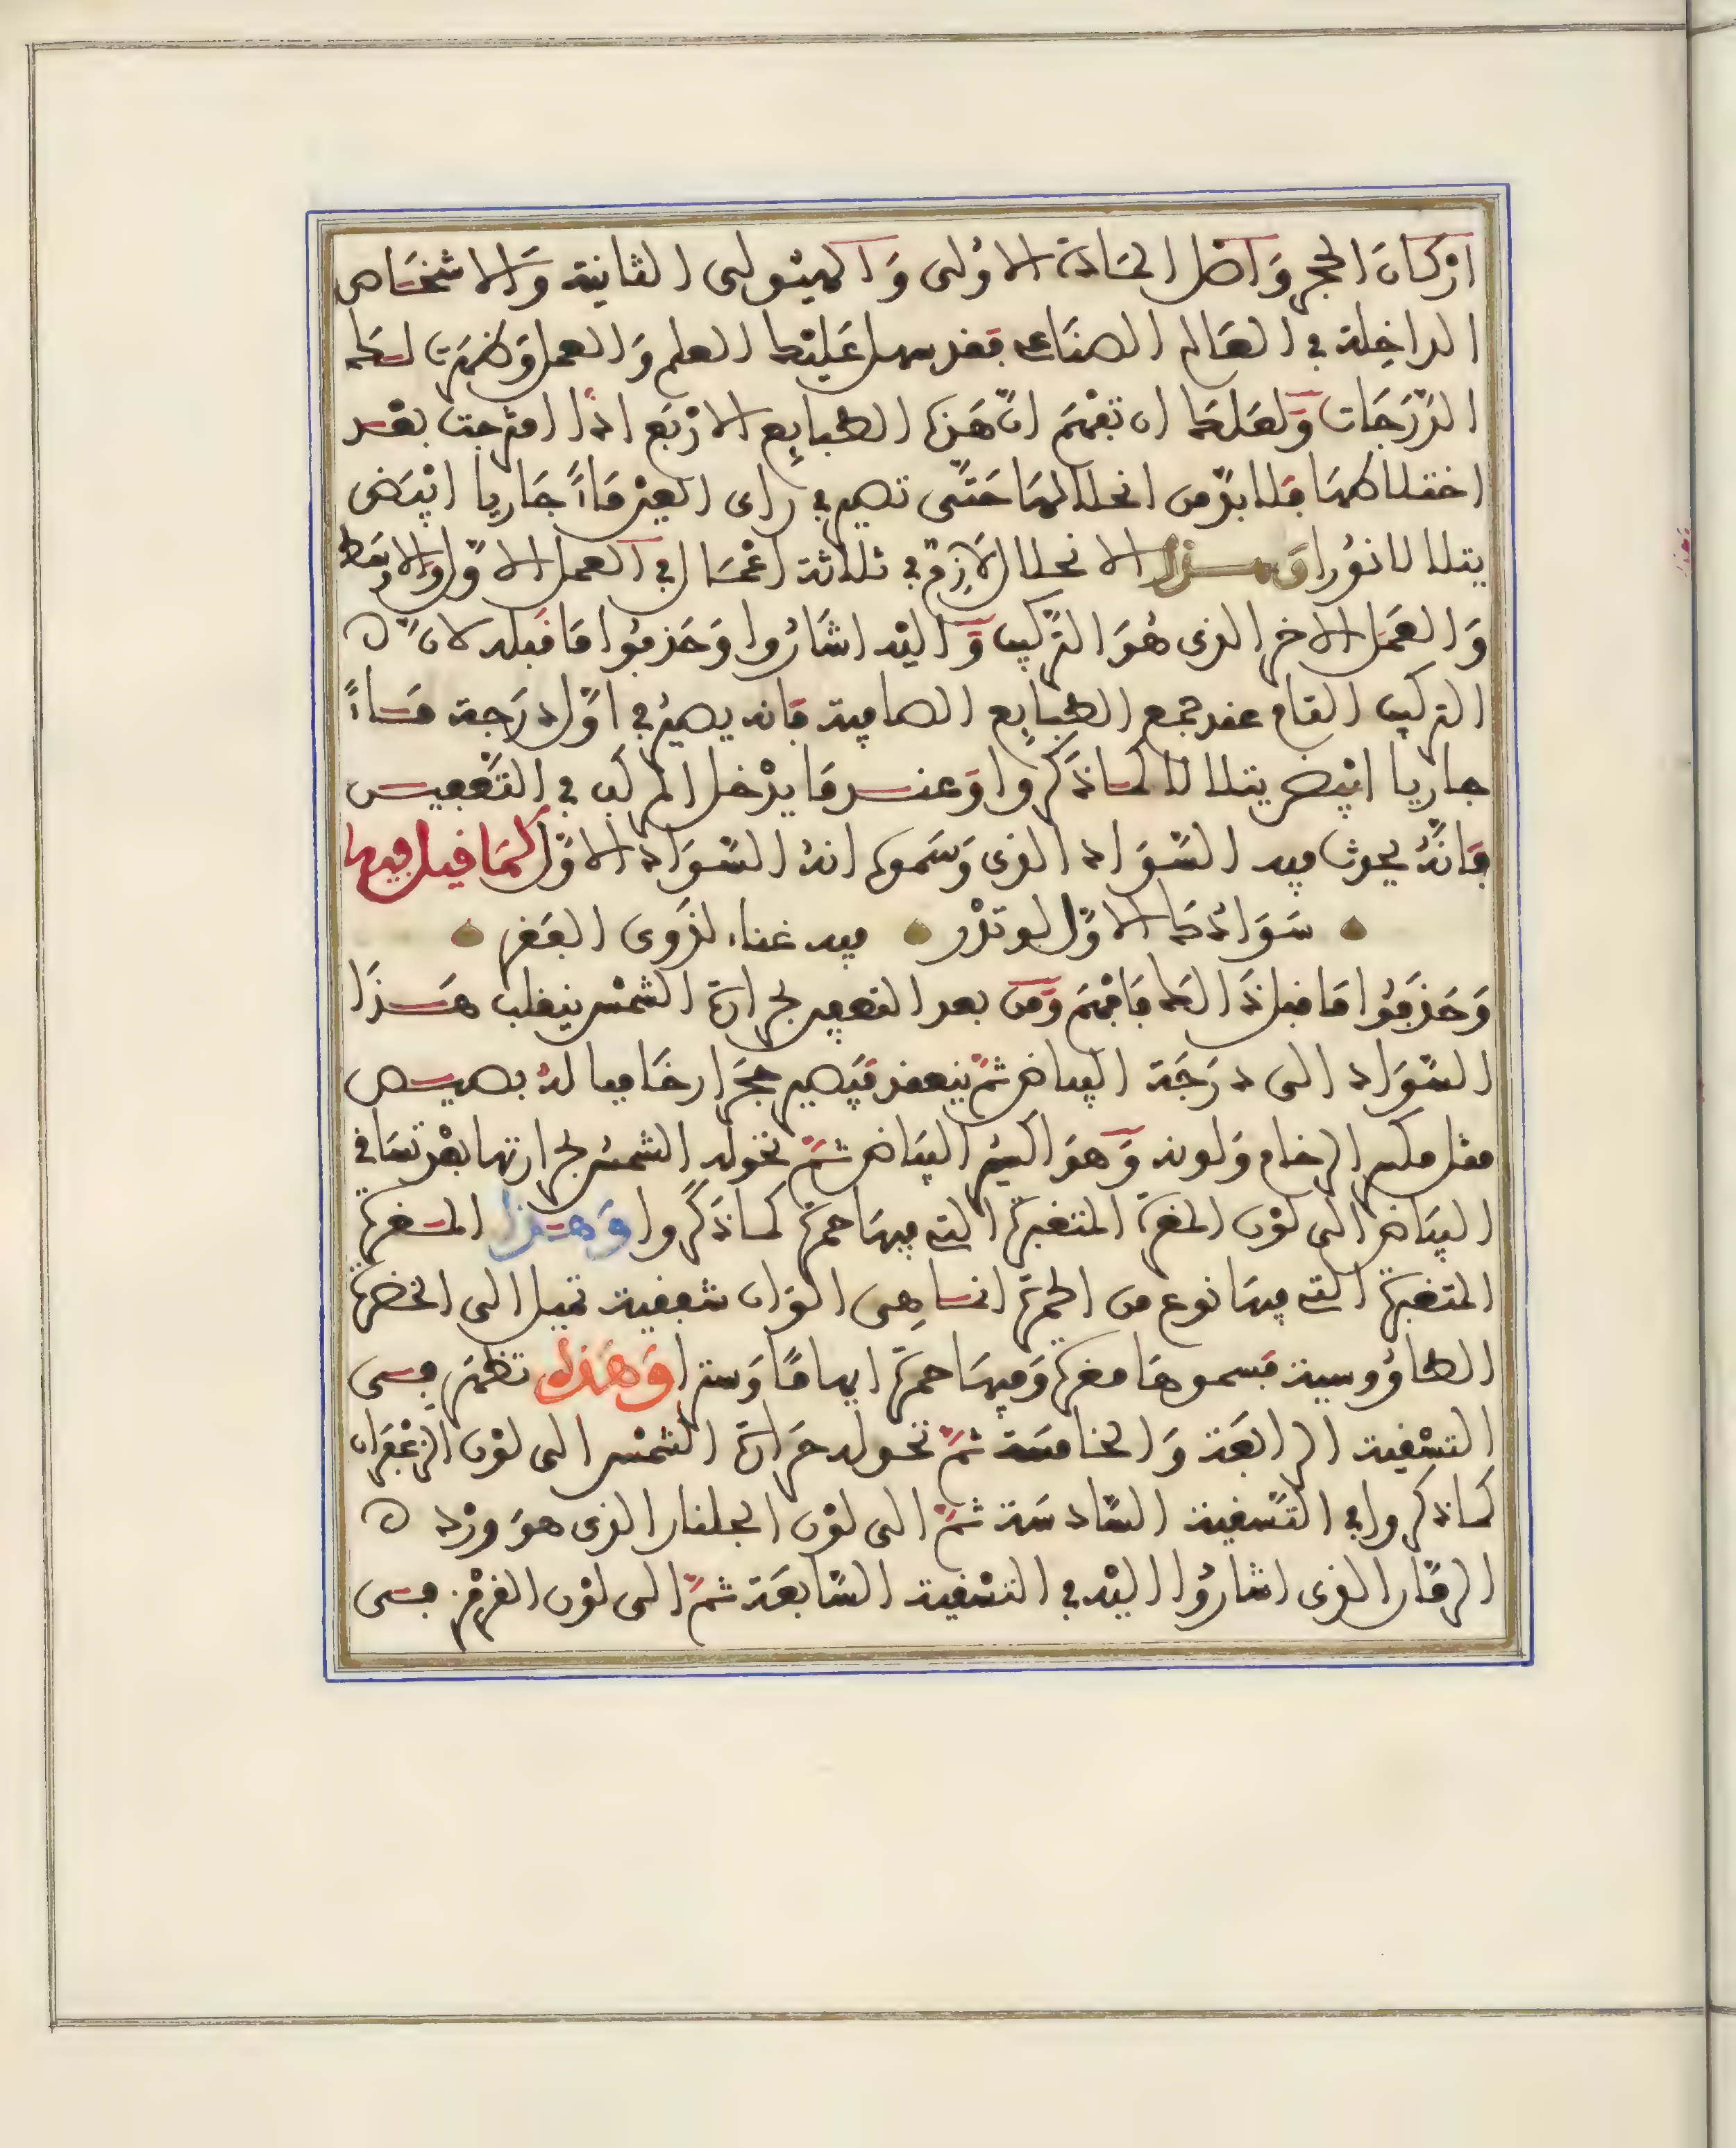 اركان الحجر واصل المادة الاولى والهيولى الثانية والاشخاص
الداخلة في العالم الصناعي فقد سهل عليك العلم والعمل وظهرت لك
الدرجات ولعلك ان تفهم ان هذه الطبايع الاربع اذا امتزجت بعد
اختلاطها فلا بد من انحلالها حتى تصير في راي العين ماء جاريا ابيض
يتلالا نورا وهذا الانحلال لازم في ثلاثة اعمال في العمل الاول والاوسط
والعمل الاخر الذي هو التركيب واليه اشاروا وحذفوا ما قبله لان
التركيب التام عند جمع الطبايع الصافية فانه يصير في اول درجة ماء
جاريا ابيض يتلالا كما ذكروا وعند ما يدخل المركب في التعفين
فانه يحدث فيه السواد الذي وسموه انه السواد الاول كما قيل فيها
سوادك الاول لو تدر فيه غناء لذوي الفقر
وحذفوا ما قبل ذالك فافهم ومن بعد التعفين بحرارة الشمس ينقلب هذا
السواد الى درجة البياض ثم ينعقد فيصير حجرا رخاميا له بصيص
مثل حكم الرخام ولونه وهو اكسير البياض ثم تحوله الشمس بحرارتها بعد تساقي
البياض الى لون المغرة المتغبرة التي فيها حمرة كما ذكروا وهذا المغرة
المتغبرة التي فيها نوع من الحمرة انما هي الوان شفقية تميل الى الخضرة
الطاووسية فسموها مغرة وفيها حمرة ايهاما وسترا وهذه تظهر في
التسقية الرابعة والخامسة ثم تحوله حرارة الشمس الى لون الزعفران
كما ذكروا في التسقية السادسة ثم الى لون الجلنار الذي هو ورد
الرمان الذي اشاروا اليه في التسقية السابعة ثم الى لون القرمز في